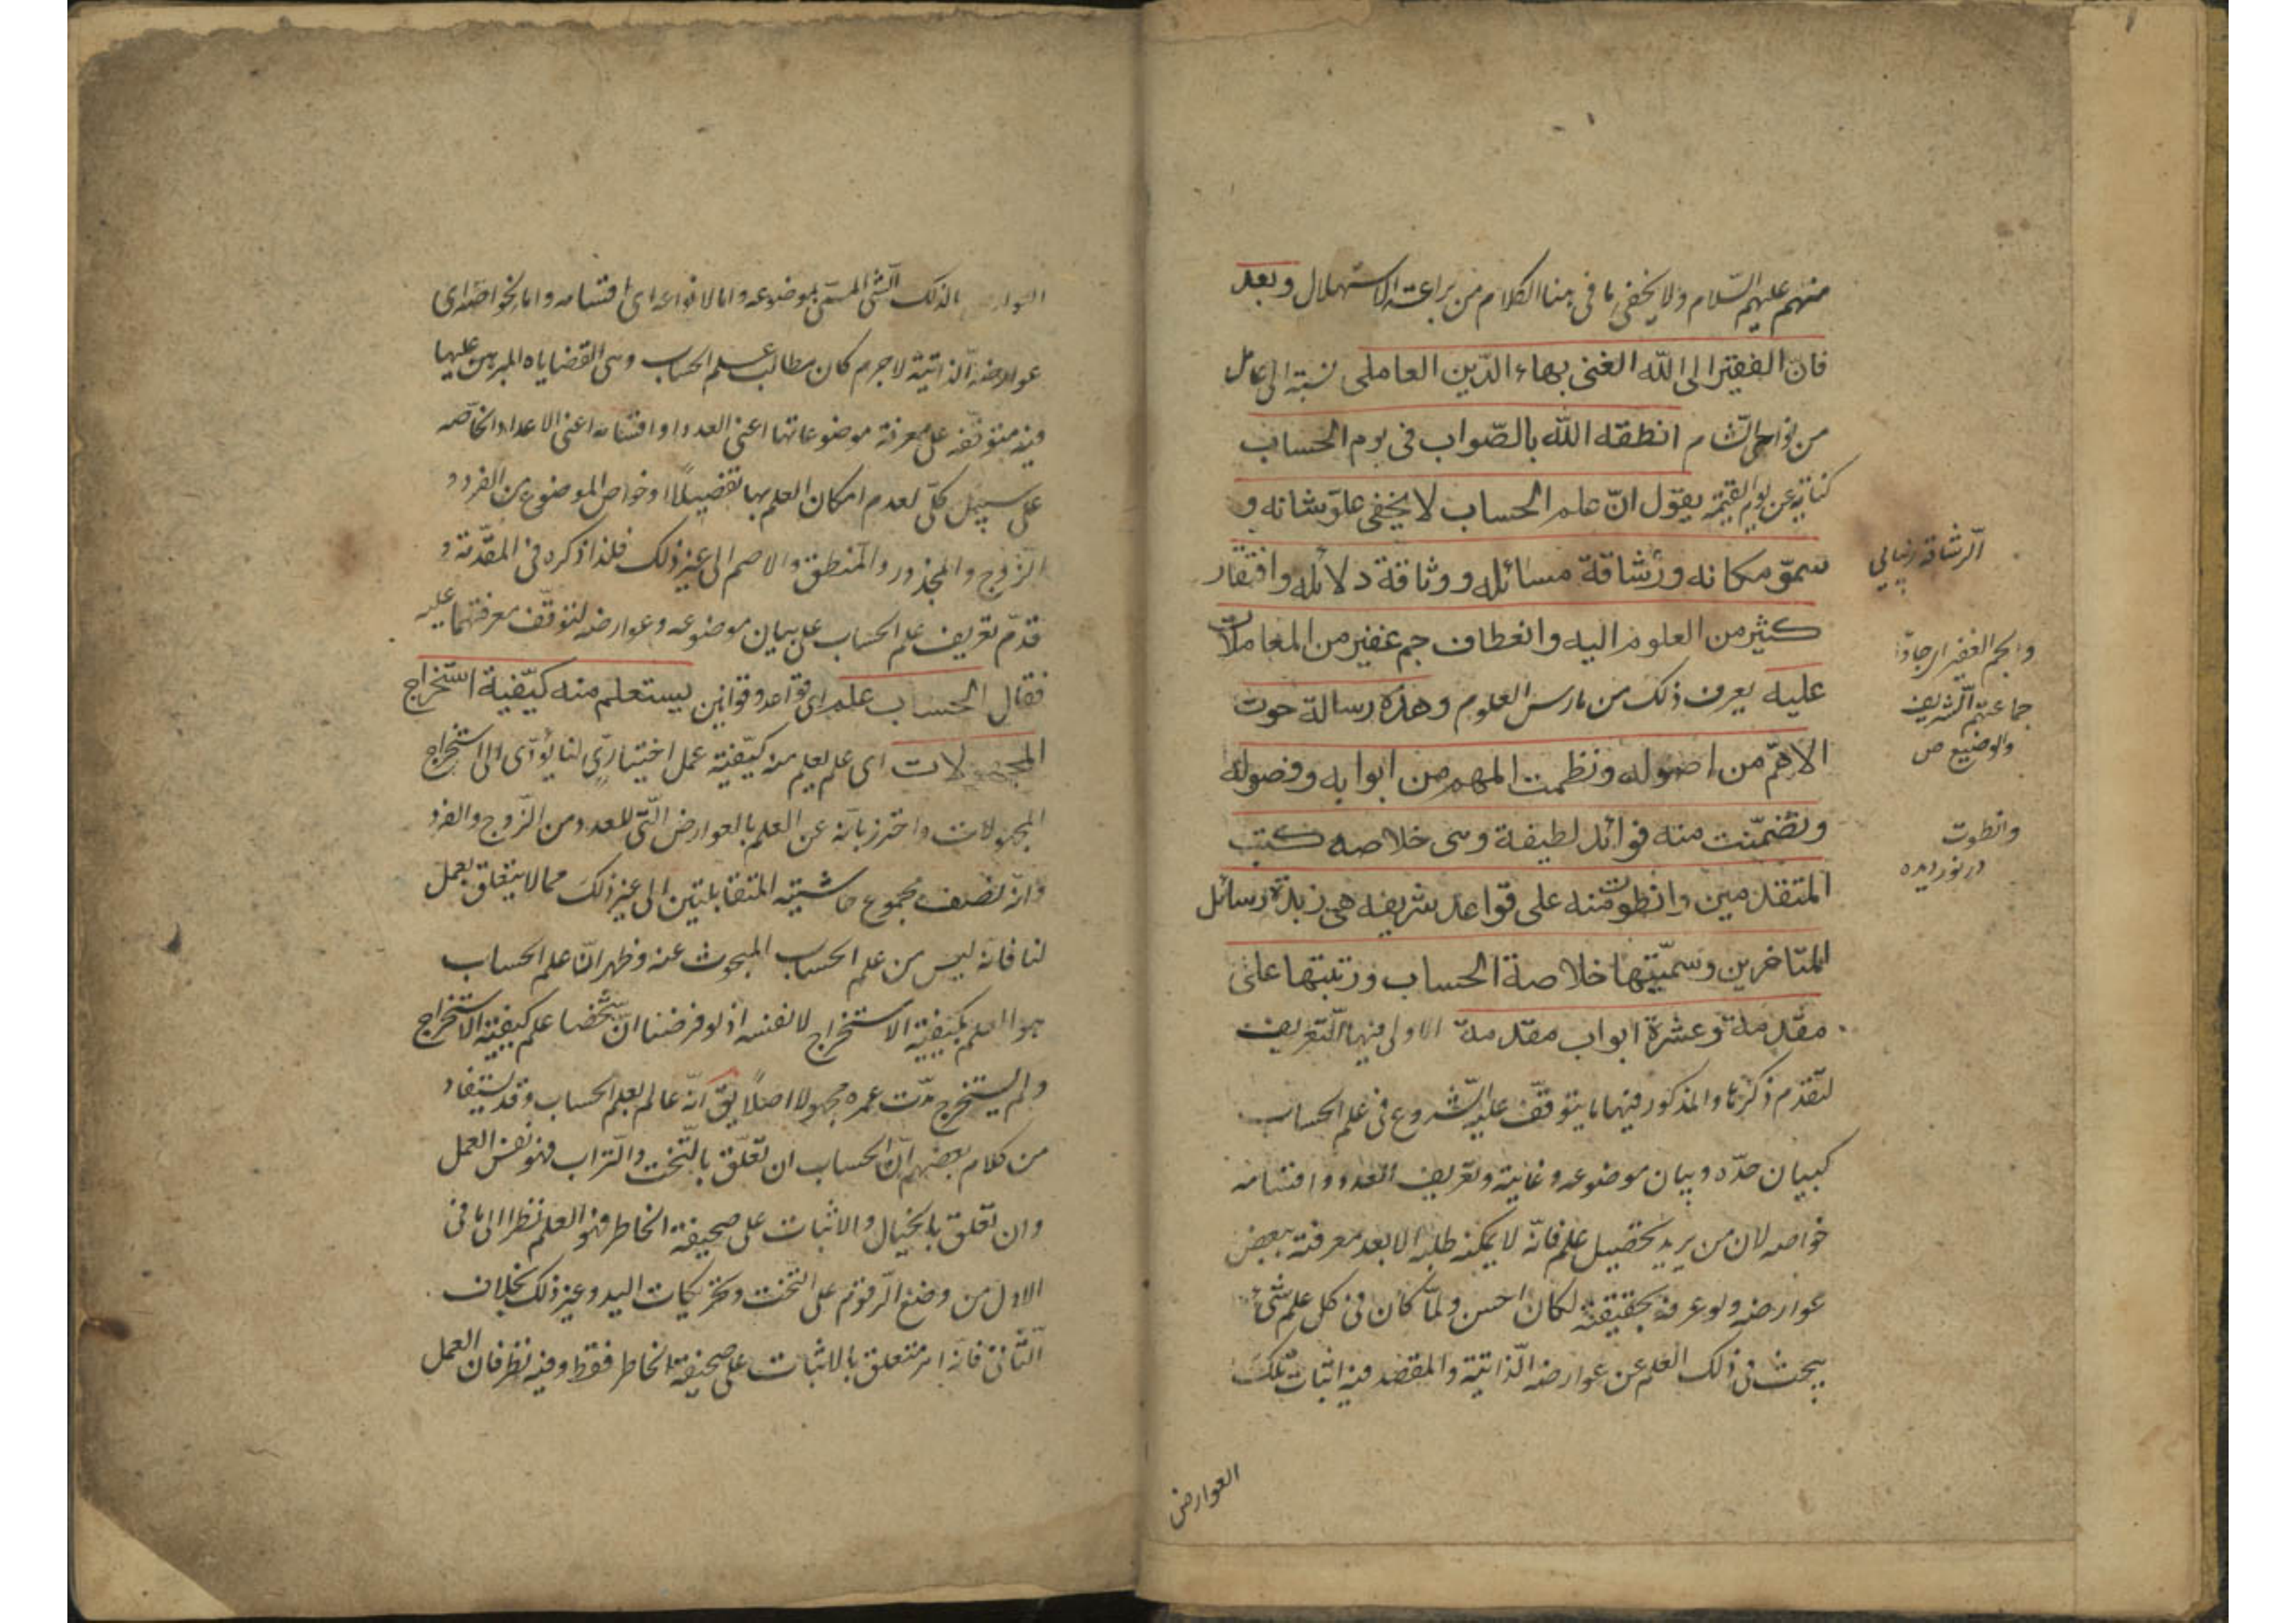 منهم عليهم السّلام ولا يخفى ما فى هذا الكلام من براعة الاستهلال وبعد
فانّ الفقير الى اللّه الغنى بهاء الدّين العاملى نسبة الى عامل
من نواحى الشام انطقه اللّه بالصّواب فى يوم الحساب
كناية عن يوم القيمة يقول انّ علم الحساب لا يخفى علوّ شانه و
سموّ مكانه ورشاقة مسائله ووثاقة دلائله وافتقار
كثير من العلوم اليه وانعطاف جم غفير من المعاملات
عليه يعرف ذلك من مارس العلوم وهذه رسالة حوت
الاهمّ من اصوله ونظمت المهم من ابوابه وفصوله
وتضمّنت منه فوائد لطيفة وهى خلاصه كتب
المتقدمين وانطوت منه على قواعد شريفه هى زبدة رسائل
المتاخرين وسمّيتها خلاصة الحساب ورتبتها على
مقدمة وعشرة ابواب مقدمة الاولى فيها التعريف
لتقدم ذكرها والمذكور فيها ما يتوقّف عليه الشروع فى علم الحساب
كبيان حدّه وبيان موضوعه وغايته وتعريف العدد واقسامه
خواصه لان من يريد تحصيل علم فانّه لا يمكنه طلبه الا بعد معرفته ببعض
عوارضه ولو عرفه بحقيقته لكان احسن ولمّا كان فى كل علم شئ
يبحث فى ذلك العلم عن عوارضه الذّاتية والمقصد فيه اثبات تلك
العوارض
الرّشاقة زيبايى
والجم الغفير اى جاؤا
جماعتهم الشريف
والوضيع ص
وانطوت
در نورديده
العوارض لذلك الشئ المسمّى بموضوعه واما لانواعه اى اقسامه واما لخواصّه اى
عوارضه الذّاتية لا جرم كان مطالب علم الحساب وهى القضاياه المبرهن عليها
فيه متوقّفه على معرفة موضوعاتها اعنى العدد او اقسامه اعنى الاعداد الخاصّه
على سبيل كلّى لعدم امكان العلم بها تفصيلًا او خواص الموضوع من الفرد و
الزّوج والمجذور والمنطق والاصم الى غير ذلك فلذا ذكره فى المقدّمة و
قدّم تعريف علم الحساب على بيان موضوعه وعوارضه لتوقّف معرفتهما عليه
فقال الحساب علم اى قواعد وقوانين يستعلم منه كيّفية استخراج
المجهولات اى علم يعلم منه كيّفية عمل اختيارىّ لنا يؤدّى الى استخراج
المجهولات واحترز بانّه عن العلم بالعوارض الّتى للعدد من الزّوج والفرد
وانّه نصف مجموع حاشيتيه المتقابلتين الى غير ذلك مما لا يتعلق بعمل
لنا فانّه ليس من علم الحساب المبحوث عنه وظهر انّ علم الحساب
هو العلم بكيفية الاستخراج لا نفسه اذ لو فرضنا انّ شخصا علم كيفية الاستخراج
ولم يستخرج مدّت عمره مجهولا اصلًا يق انّه عالم بعلم الحساب وقد يستفاد
من كلام بعضهم انّ الحساب ان تعلّق بالتّخت والتّراب فهو نفس العمل
وان تعلق بالخيال والاثبات على صحيفة الخاطر فهو العلم نظرا الى ما فى
الاول من وضع الرّقوم على التّخت وتحريكات اليد وغير ذلك بخلاف
الثّانى فانّه امر متعلق بالاثبات على صحيفة الخاطر فقط وفيه نظر فان العمل